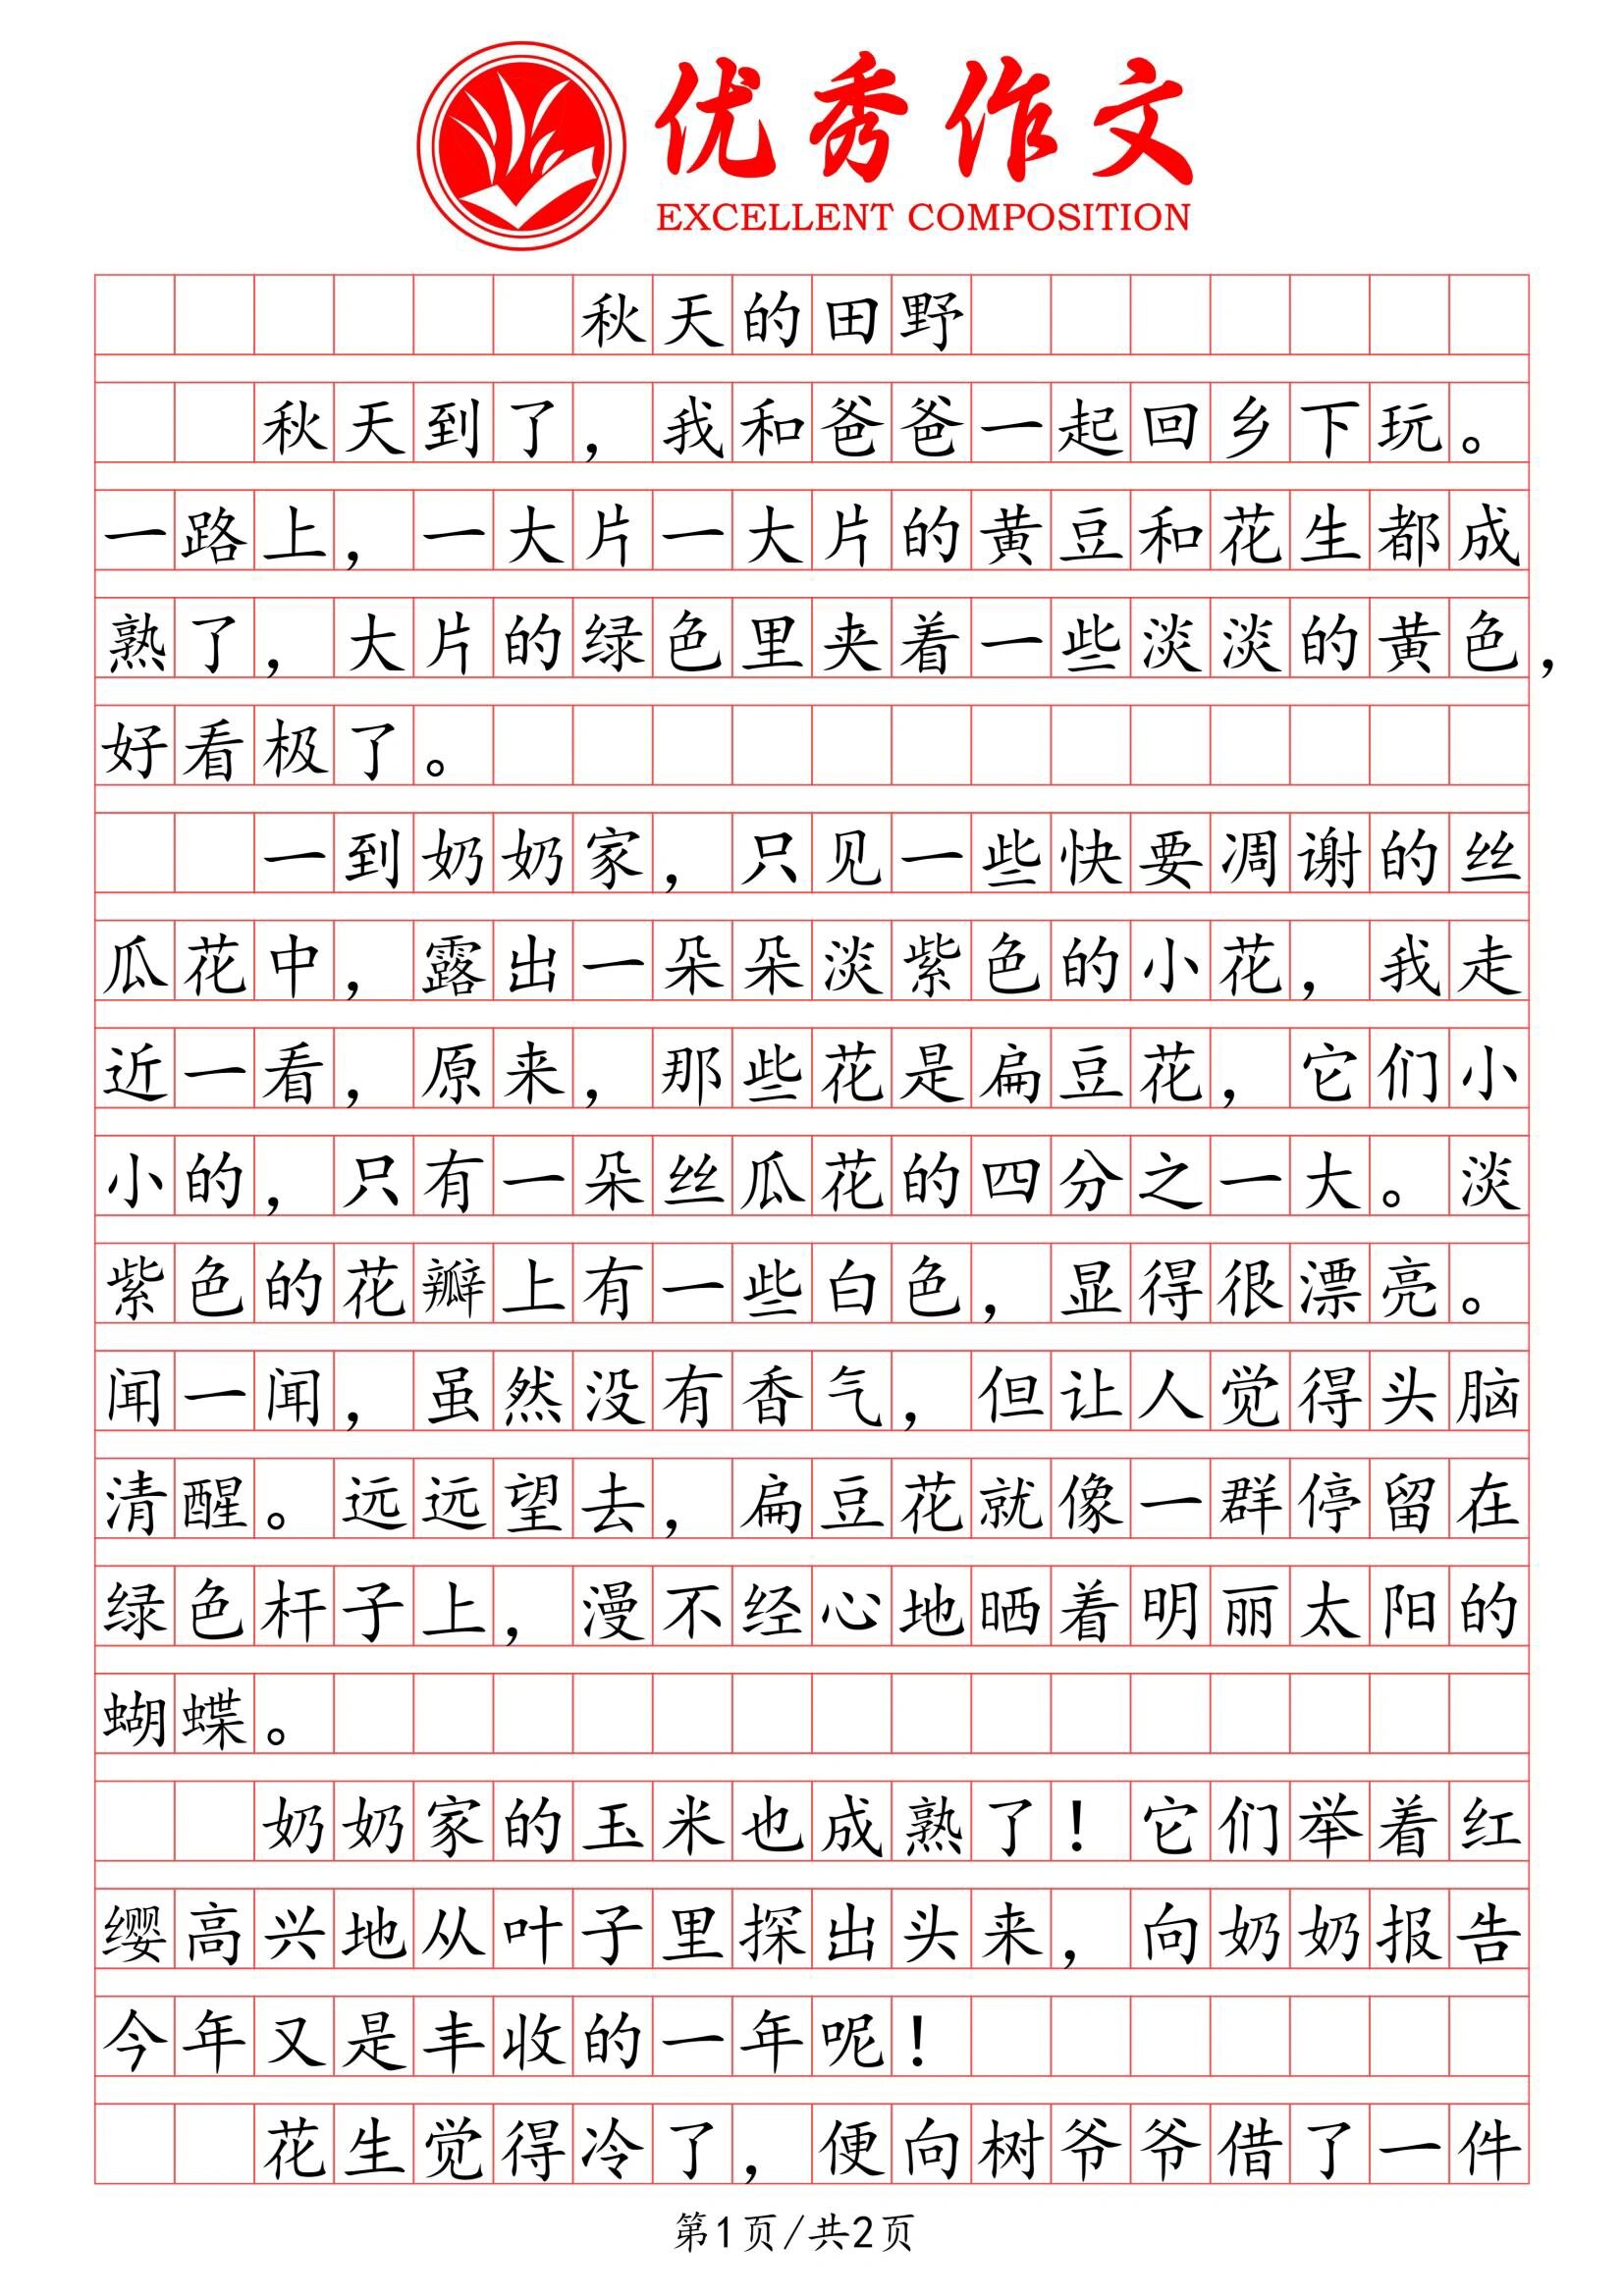 优秀作文
EXCELLENT COMPOSITION
秋天的田野
秋天到了，我和爸爸一起回乡下玩。
一路上，一大片一大片的黄豆和花生都成
熟了，大片的绿色里夹着一些淡淡的黄色，
好看极了。
一到奶奶家，只见一些快要凋谢的丝
瓜花中，露出一朵朵淡紫色的小花，我走
近一看，原来，那些花是扁豆花，它们小
小的，只有一朵丝瓜花的四分之一大。淡
紫色的花瓣上有一些白色，显得很漂亮。
闻一闻，虽然没有香气，但让人觉得头脑
清醒。远远望去，扁豆花就像一群停留在
绿色杆子上，漫不经心地晒着明丽太阳的
蝴蝶。
奶奶家的玉米也成熟了！它们举着红
缨高兴地从叶子里探出头来，向奶奶报告
今年又是丰收的一年呢！
花生觉得冷了，便向树爷爷借了一件
第1页/共2页